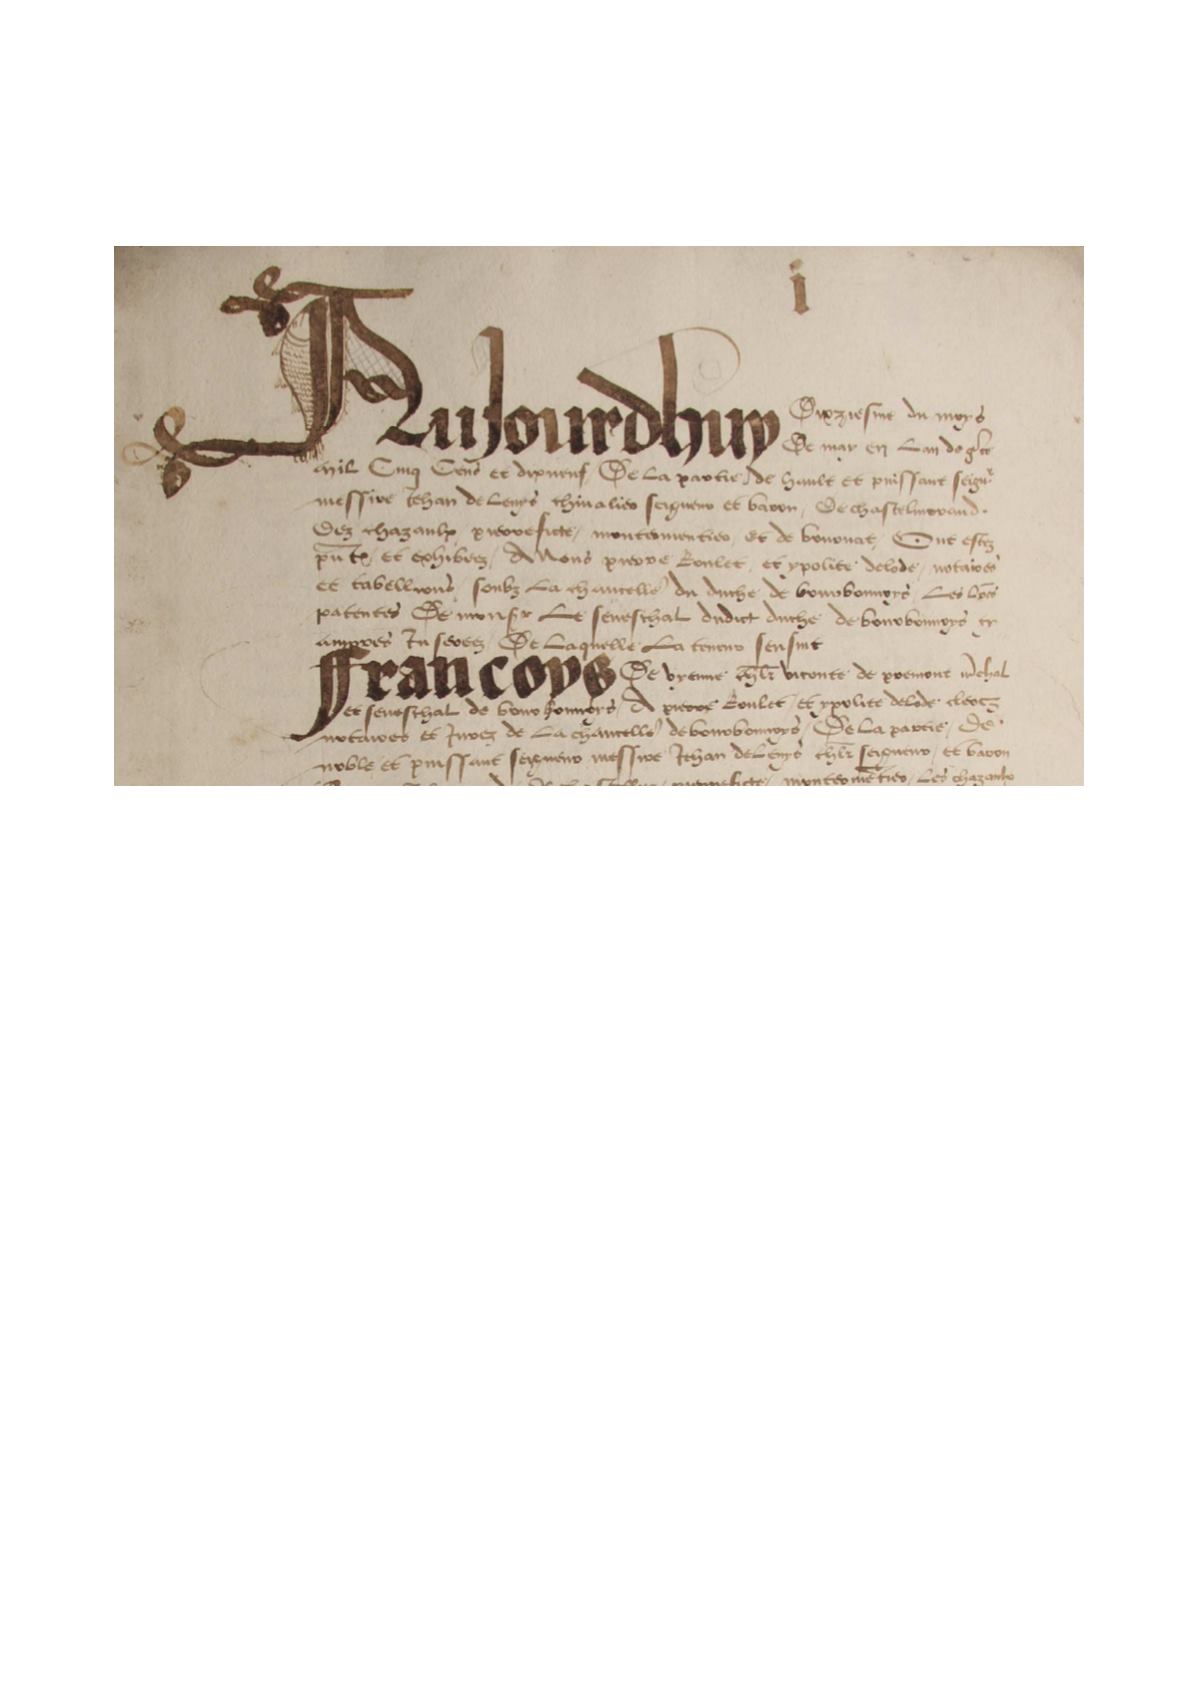 i
Aujourdhuy Dixziesme du moys
De may en Lan de g̃ce
mil Cinq Cens et dixneuf De La partie de hault et puissant seigr
messire Jehan de Leuys chiualier seigneur et baron De chastelmorand
Dez chazaulx pierreficte montermentier et de bonnat Ont estez
pñtes et exhibees A Nous pierre Roulet et ypolite delode notaires
et tabellions soubz La chancelle du duche de bourbonnoys Les lr̃es
patentes De monsr Le seneschal dudict duche de bourbonnoys cy
Inserees De Laquelle La teneur sensuit
Francoys De vienne chl̃r viconte de mar̃chal
et seneschal de bourbonnoys A pierre Roulet et ypolite delode clercz
notaires et Jurez de La chancelle de bourbonnoys De La partie De
noble et puissant seigneur messire Jehan de Leuys chl̃r seigneur et baron
pierreficte montermẽtier Les chazaulx